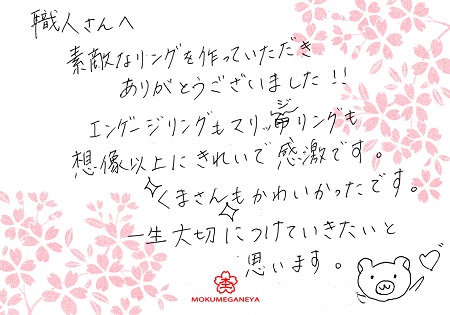 職人さんへ
素敵なリングを作っていただき
ありがとうございました!!
エンゲージリングもマリッジリングも
想像以上にきれいで感激です。
くまさんもかわいかったです。
一生大切につけていきたいと
思います。
MOKUMEGANEYA